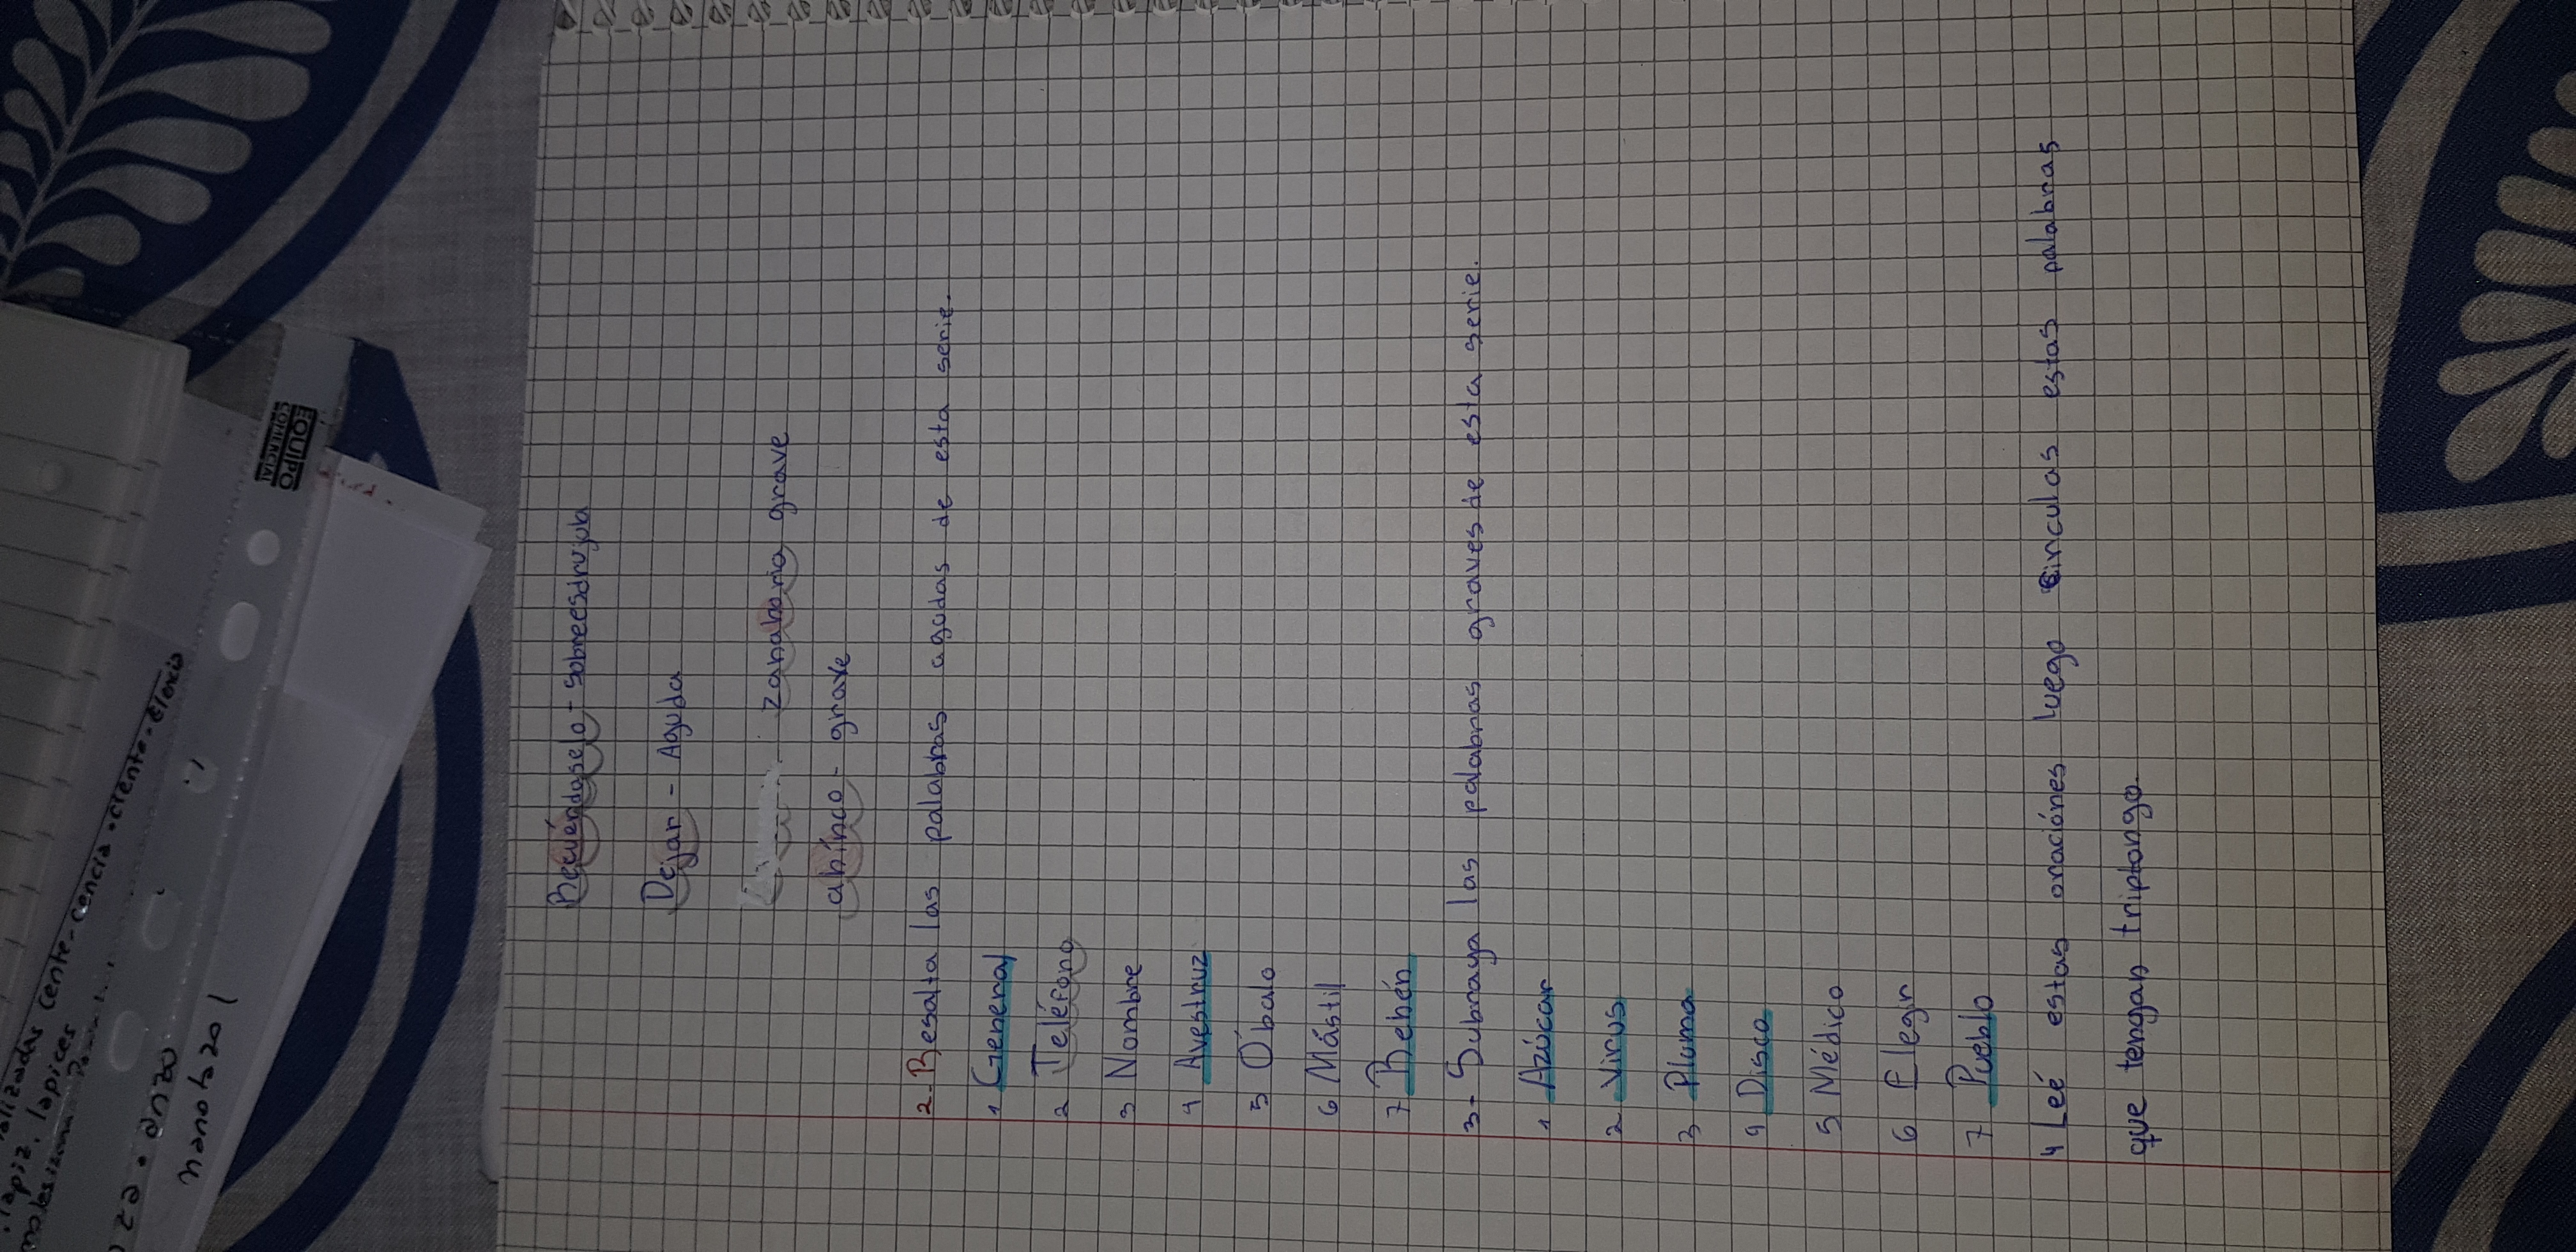 Recuérdaselo - Sobreesdrujula
Dejar - Aguda
Zanahoria grave
ahínco - grave
2- Resalta las palabras agudas de esta serie.
1 General
2 Teléfono
3 Nombre
4 Avestruz
5 Óbalo
6 Mástil
7 Bebén
3- Subraya las palabras graves de esta serie.
1 Azúcar
2 Virus
3 Pluma
4 Disco
5 Médico
6 Elegir
7 Pueblo
4 Leé estas oraciónes luego circulas estas palabras
que tengan triptongo.
EQUIPO
COMERCIAL
alizadas cente-cencia-ciento-encia
lapiz. lapices
nza. onzo